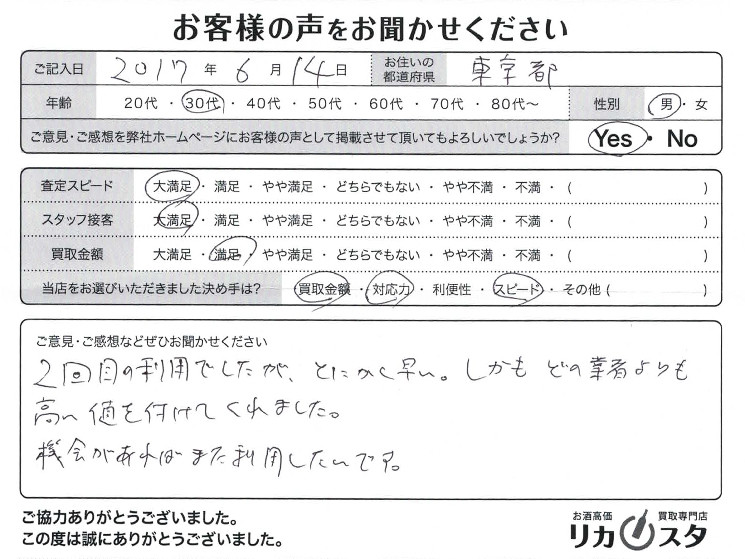 お客様の声をお聞かせください
ご記入日 2017 年 6 月 14 日 お住いの都道府県 東京都
年齢 20代 ・ 30代 ・ 40代 ・ 50代 ・ 60代 ・ 70代 ・ 80代～ 性別 男 ・ 女
ご意見・ご感想を弊社ホームページにお客様の声として掲載させて頂いてもよろしいでしょうか? Yes ・ No
査定スピード 大満足 ・ 満足 ・ やや満足 ・ どちらでもない ・ やや不満 ・ 不満 ・ ( )
スタッフ接客 大満足 ・ 満足 ・ やや満足 ・ どちらでもない ・ やや不満 ・ 不満 ・ ( )
買取金額 大満足 ・ 満足 ・ やや満足 ・ どちらでもない ・ やや不満 ・ 不満 ・ ( )
当店をお選びいただきました決め手は? 買取金額 ・ 対応力 ・ 利便性 ・ スピード ・ その他 ( )
ご意見・ご感想などぜひお聞かせください
2回目の利用でしたが、とにかく早い。しかもどの業者よりも
高い値を付けてくれました。
機会があればまた利用したいです。
ご協力ありがとうございました。
この度は誠にありがとうございました。
お酒高価 買取専門店
リカスタ